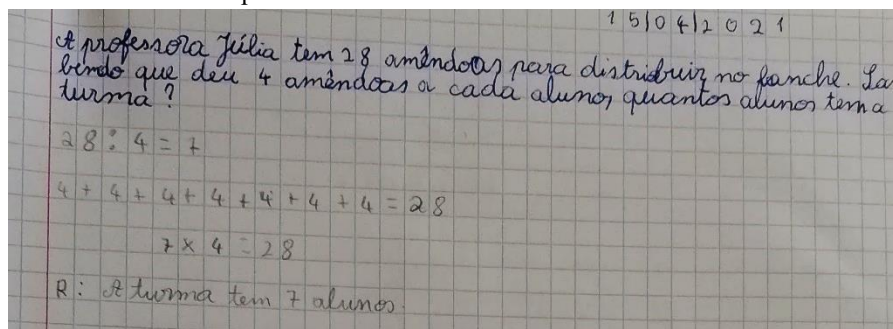 15/04/2021
A professora Júlia tem 28 amêndoas para distribuir no lanche. Sa
bendo que deu 4 amêndoas a cada aluno, quantos alunos tem a
turma?
28 : 4 = 7
4 + 4 + 4 + 4 + 4 + 4 + 4 = 28
7 x 4 = 28
R: A turma tem 7 alunos.